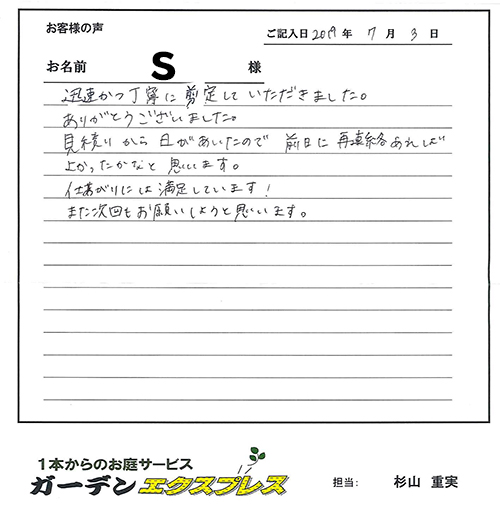 お客様の声
ご記入日 2019年 7月 3日
お名前 S 様
迅速かつ丁寧に剪定していただきました。
ありがとうございました。
見積りから日があいたので 前日に再連絡あれば
よかったかなと思います。
仕上がりには満足しています！
また次回もお願いしようと思います。
1本からのお庭サービス
ガーデンエクスプレス
担当： 杉山 重実